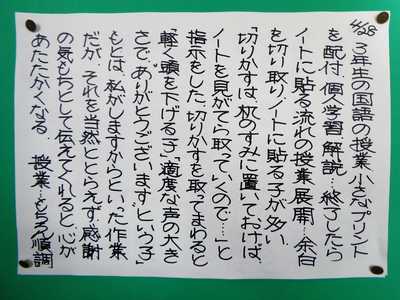 4/28
3年生の国語の授業、小さなプリント
を配付、個人学習、解説…終了したら
ノートに貼る流れの授業展開…余白
を切り取り、ノートに貼る子が多い。
「切りかすは、机のすみに置いておけば、
ノートを見がてら取っていくので…」と
指示をした。切りかすを取ってまわると
「軽く頭を下げる子」「適度な声の大き
さで、ありがとうございます、という子」
もとは、私がしますからといった作業
だが、それを当然ととらえず、感謝
の気もちとして伝えてくれると、心が
あたたかくなる。 授業…もちろん順調